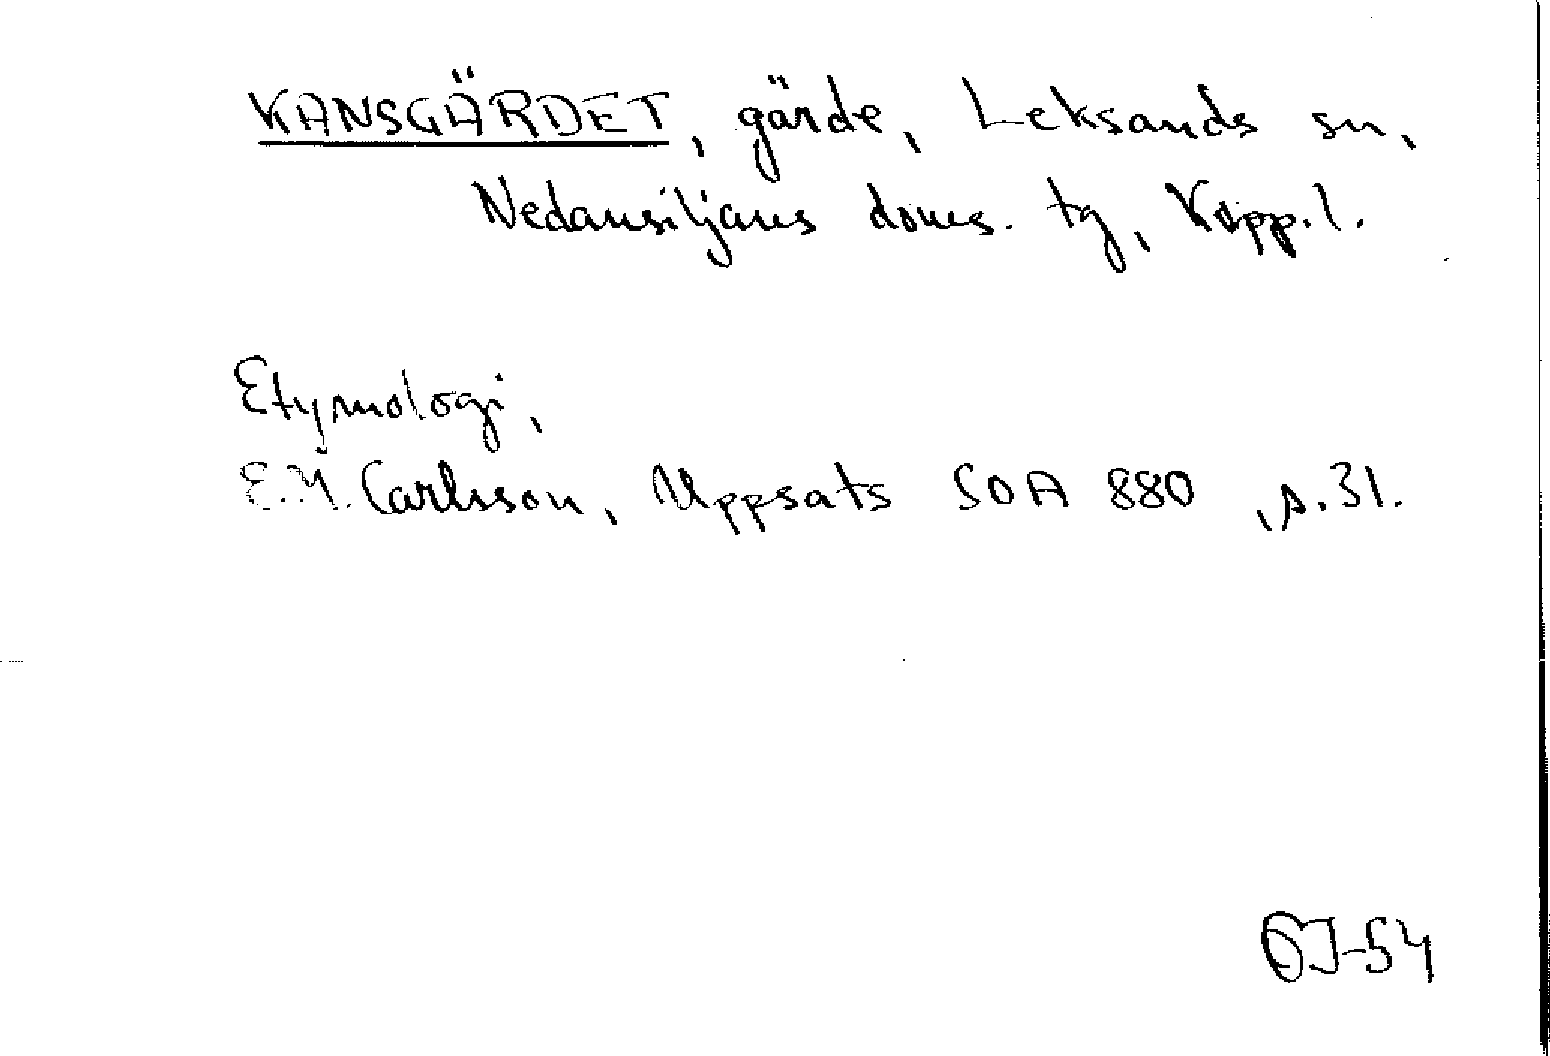 KANSGÄRDET, gärde, Leksands sn,
Nedansiljans doms. tg, Kopp.l.
Etymologi,
E.M. Carlsson, Uppsats SOA 880, s.31.